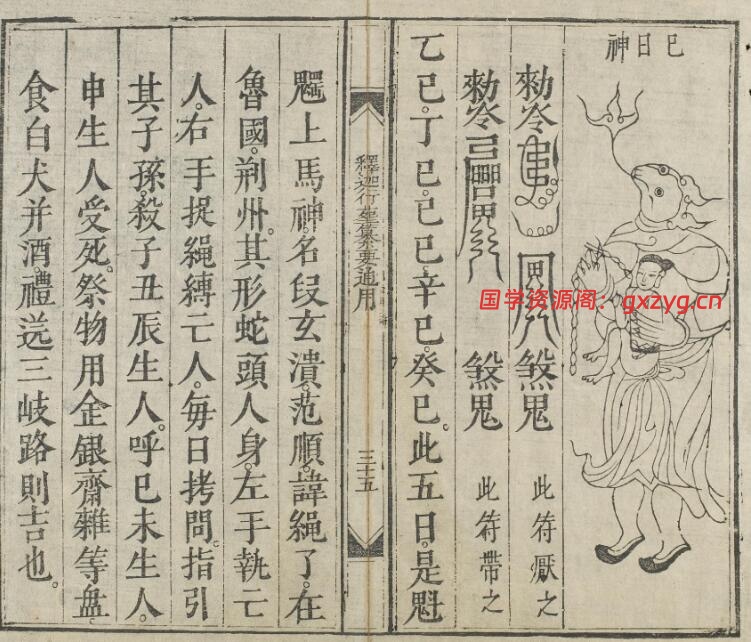 巳日神
勅令 煞鬼 此符厭之
勅令 煞鬼 此符帶之
乙巳。丁巳。己巳。辛巳。癸巳。此五日。是魁
釋迦行 纂要通用 三十五
上馬神。名叚玄潰。范順。諱繩了。在
魯國。荆州。其形蛇頭人身。左手執亡
人。右手捉繩縛亡人。每日拷問。指引
其子孫。殺子丑辰生人。呼巳未生人。
申生人受死。祭物用金銀齋雜等盘。
食白犬并酒。禮送三岐路則吉也。
国学资源阁：gxzyg.cn